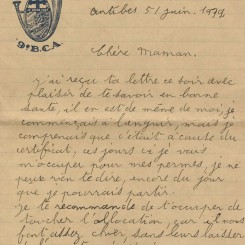 9e B.C.A.
Antibes 5 juin 1979
Chère Maman.
j'ai reçu ta lettre ce soir avec
plaisir de te savoir en bonne
santé, il en est de même de moi, je
commençais à languir, mais je
comprenais que c'était à cause du
certificat, ces jours ci je vais
m'occuper pour mes permes, je ne
peux rien te dire, encore du jour
que je pourrais partir.
je te recommande de t'occuper de
toucher l'allocation, car il nous
font assez chier, sans leurs laisser